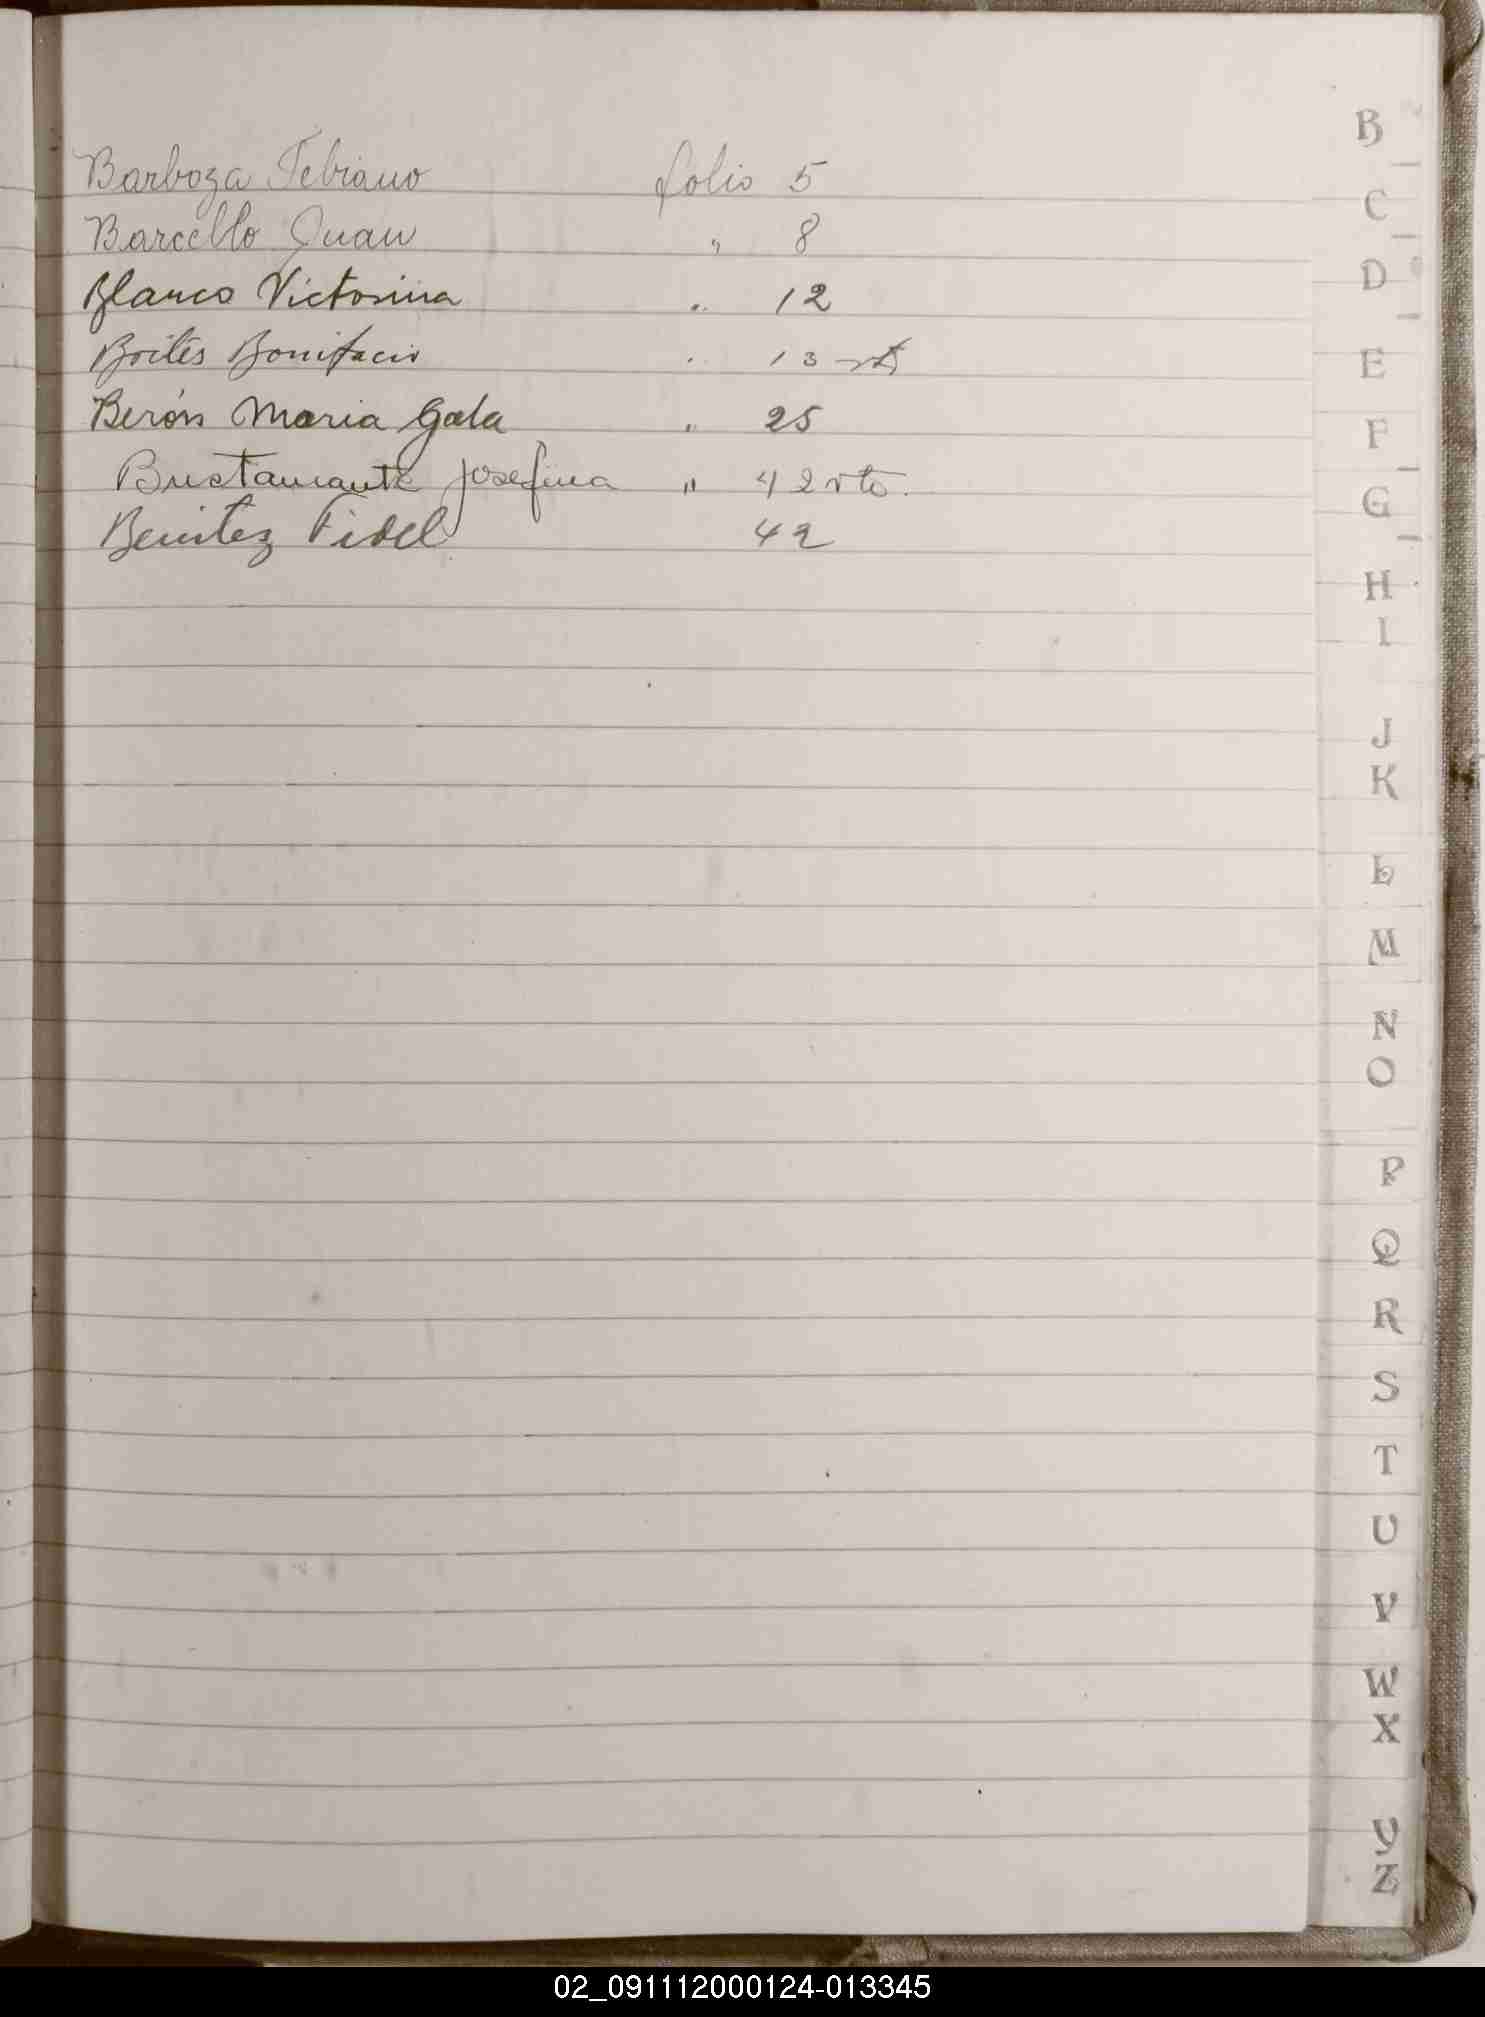 Barboza Febiano folio 5
Barcello Juan " 8
Blanco Victorina " 12
Boites Bonifacio " 13 vto
Berón Maria Gala " 25
Bustamante Josefina " 42 vto.
Benitez Fidel 42
B
C
D
E
F
G
H
I
J
K
L
M
N
O
P
Q
R
S
T
U
V
W
X
Y
Z
02_091112000124-013345